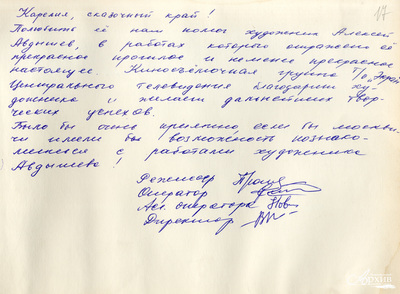 17
Карелия, сказочный край!
Полюбить её нам помог художник Алексей
Авдышев, в работах которого отражено её
прекрасное прошлое и не менее прекрасное
настоящее. Киносъёмочная группа Т/о "Экран"
Центрального телевидения благодарит ху-
дожника и желает дальнейших твор-
ческих успехов.
Было бы очень приятно, если бы москви-
чи имели бы возможность познако-
миться с работами художника
Авдышева!
Режиссер
Оператор
Асс. оператора
Директор